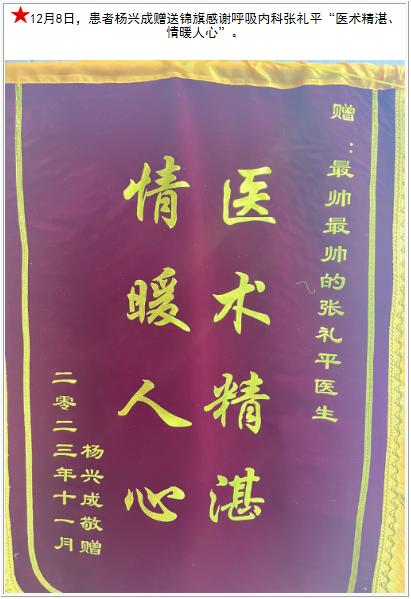 ★12月8日，患者杨兴成赠送锦旗感谢呼吸内科张礼平“医术精湛、
情暖人心”。
赠：最帅最帅的张礼平医生
医术精湛
情暖人心
杨兴成敬赠
二零二三年十一月